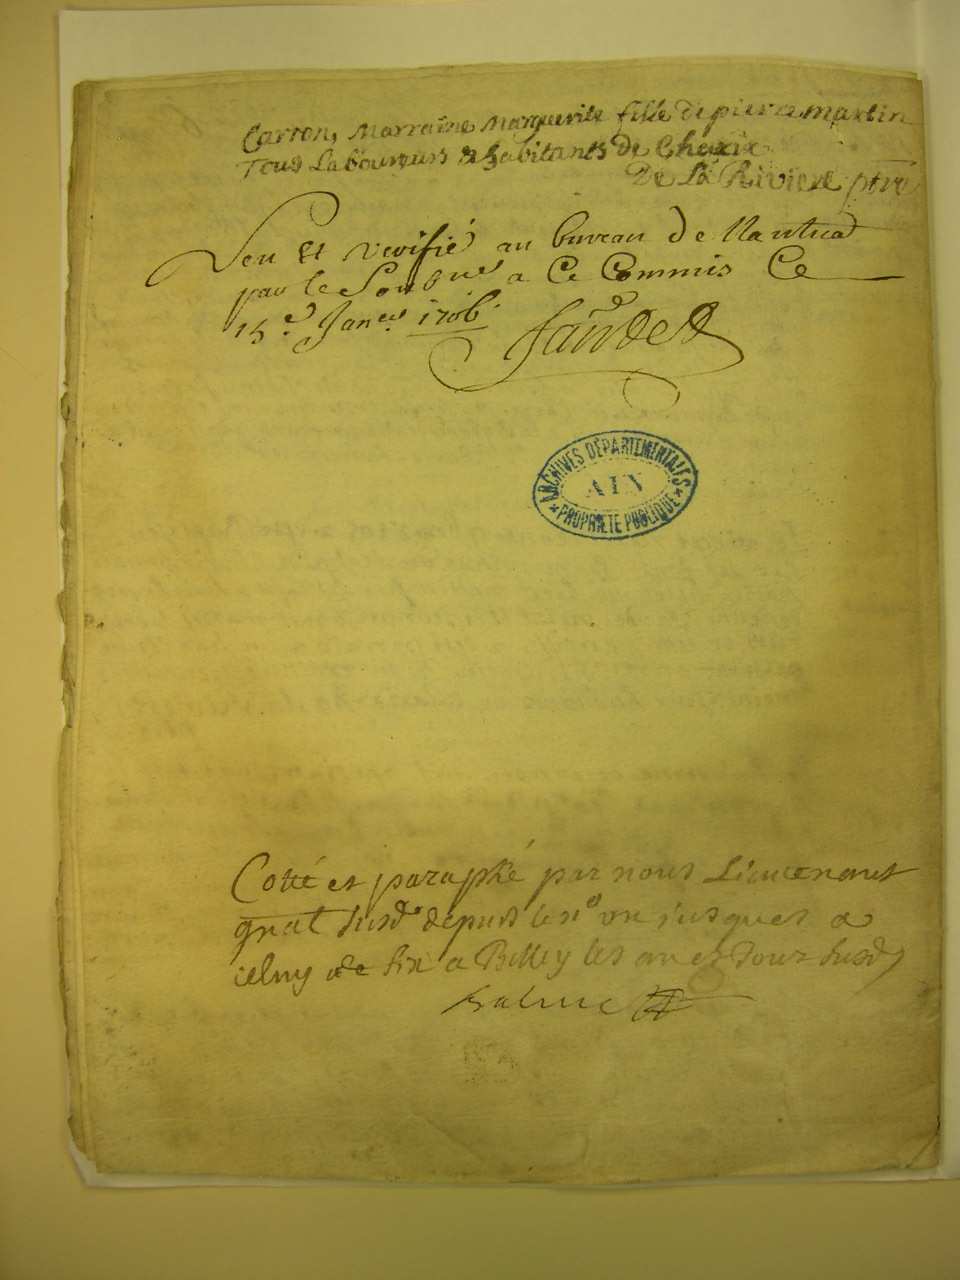 Carron, Marraine Marguerite fille de pierre martin
Tous Laboureurs & habitants de
De La Riviere ptre
Veu Et veriffié au bureau de Nantua
par le Sousgné a Ce Commis Ce
15e Janer 1706
ARCHIVES DÉPARTEMENTALES
AIN
PROPRIÉTÉ PUBLIQUE
Cotté et paraphé par nous Lieutenant
gnal susd depuis le no un jusques a
celuy de six a Belley les an et jour susd